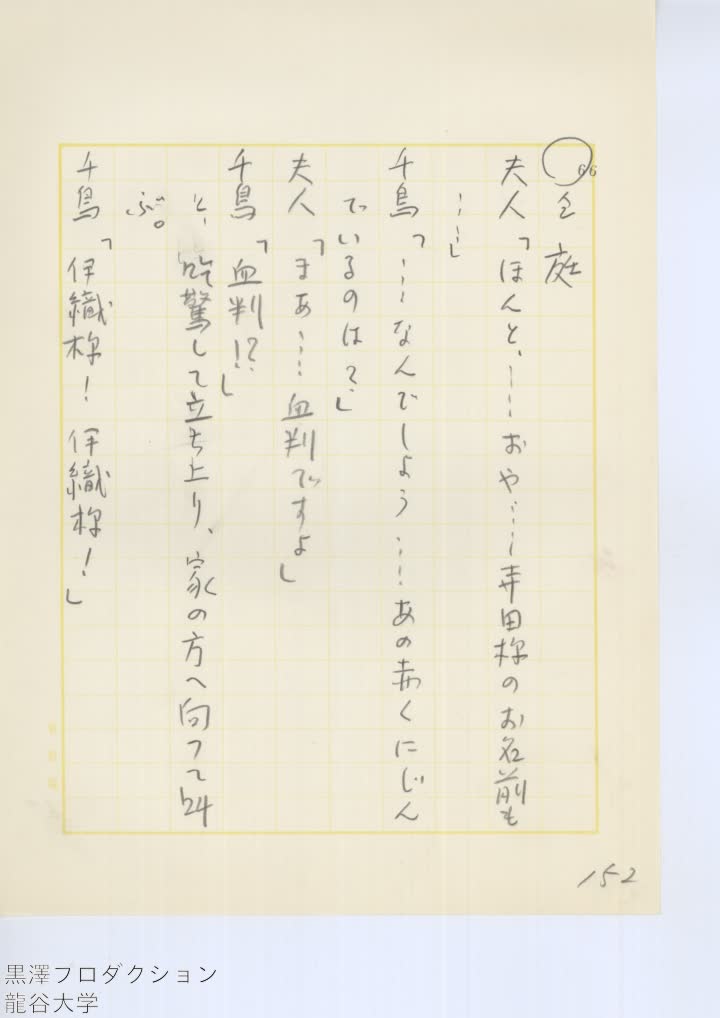 66
○仝 庭
夫人「ほんと、……おや……寺田様のお名前も
……」
千鳥「……なんでしよう……あの赤くにじん
でいるのは?」
夫人「まあ……血判ですよ」
千鳥「血判!?」
と、吃驚して立ち上り、家の方へ向つて叫
ぶ。
千鳥「伊織様! 伊織様!」
152
黒澤プロダクション
龍谷大学